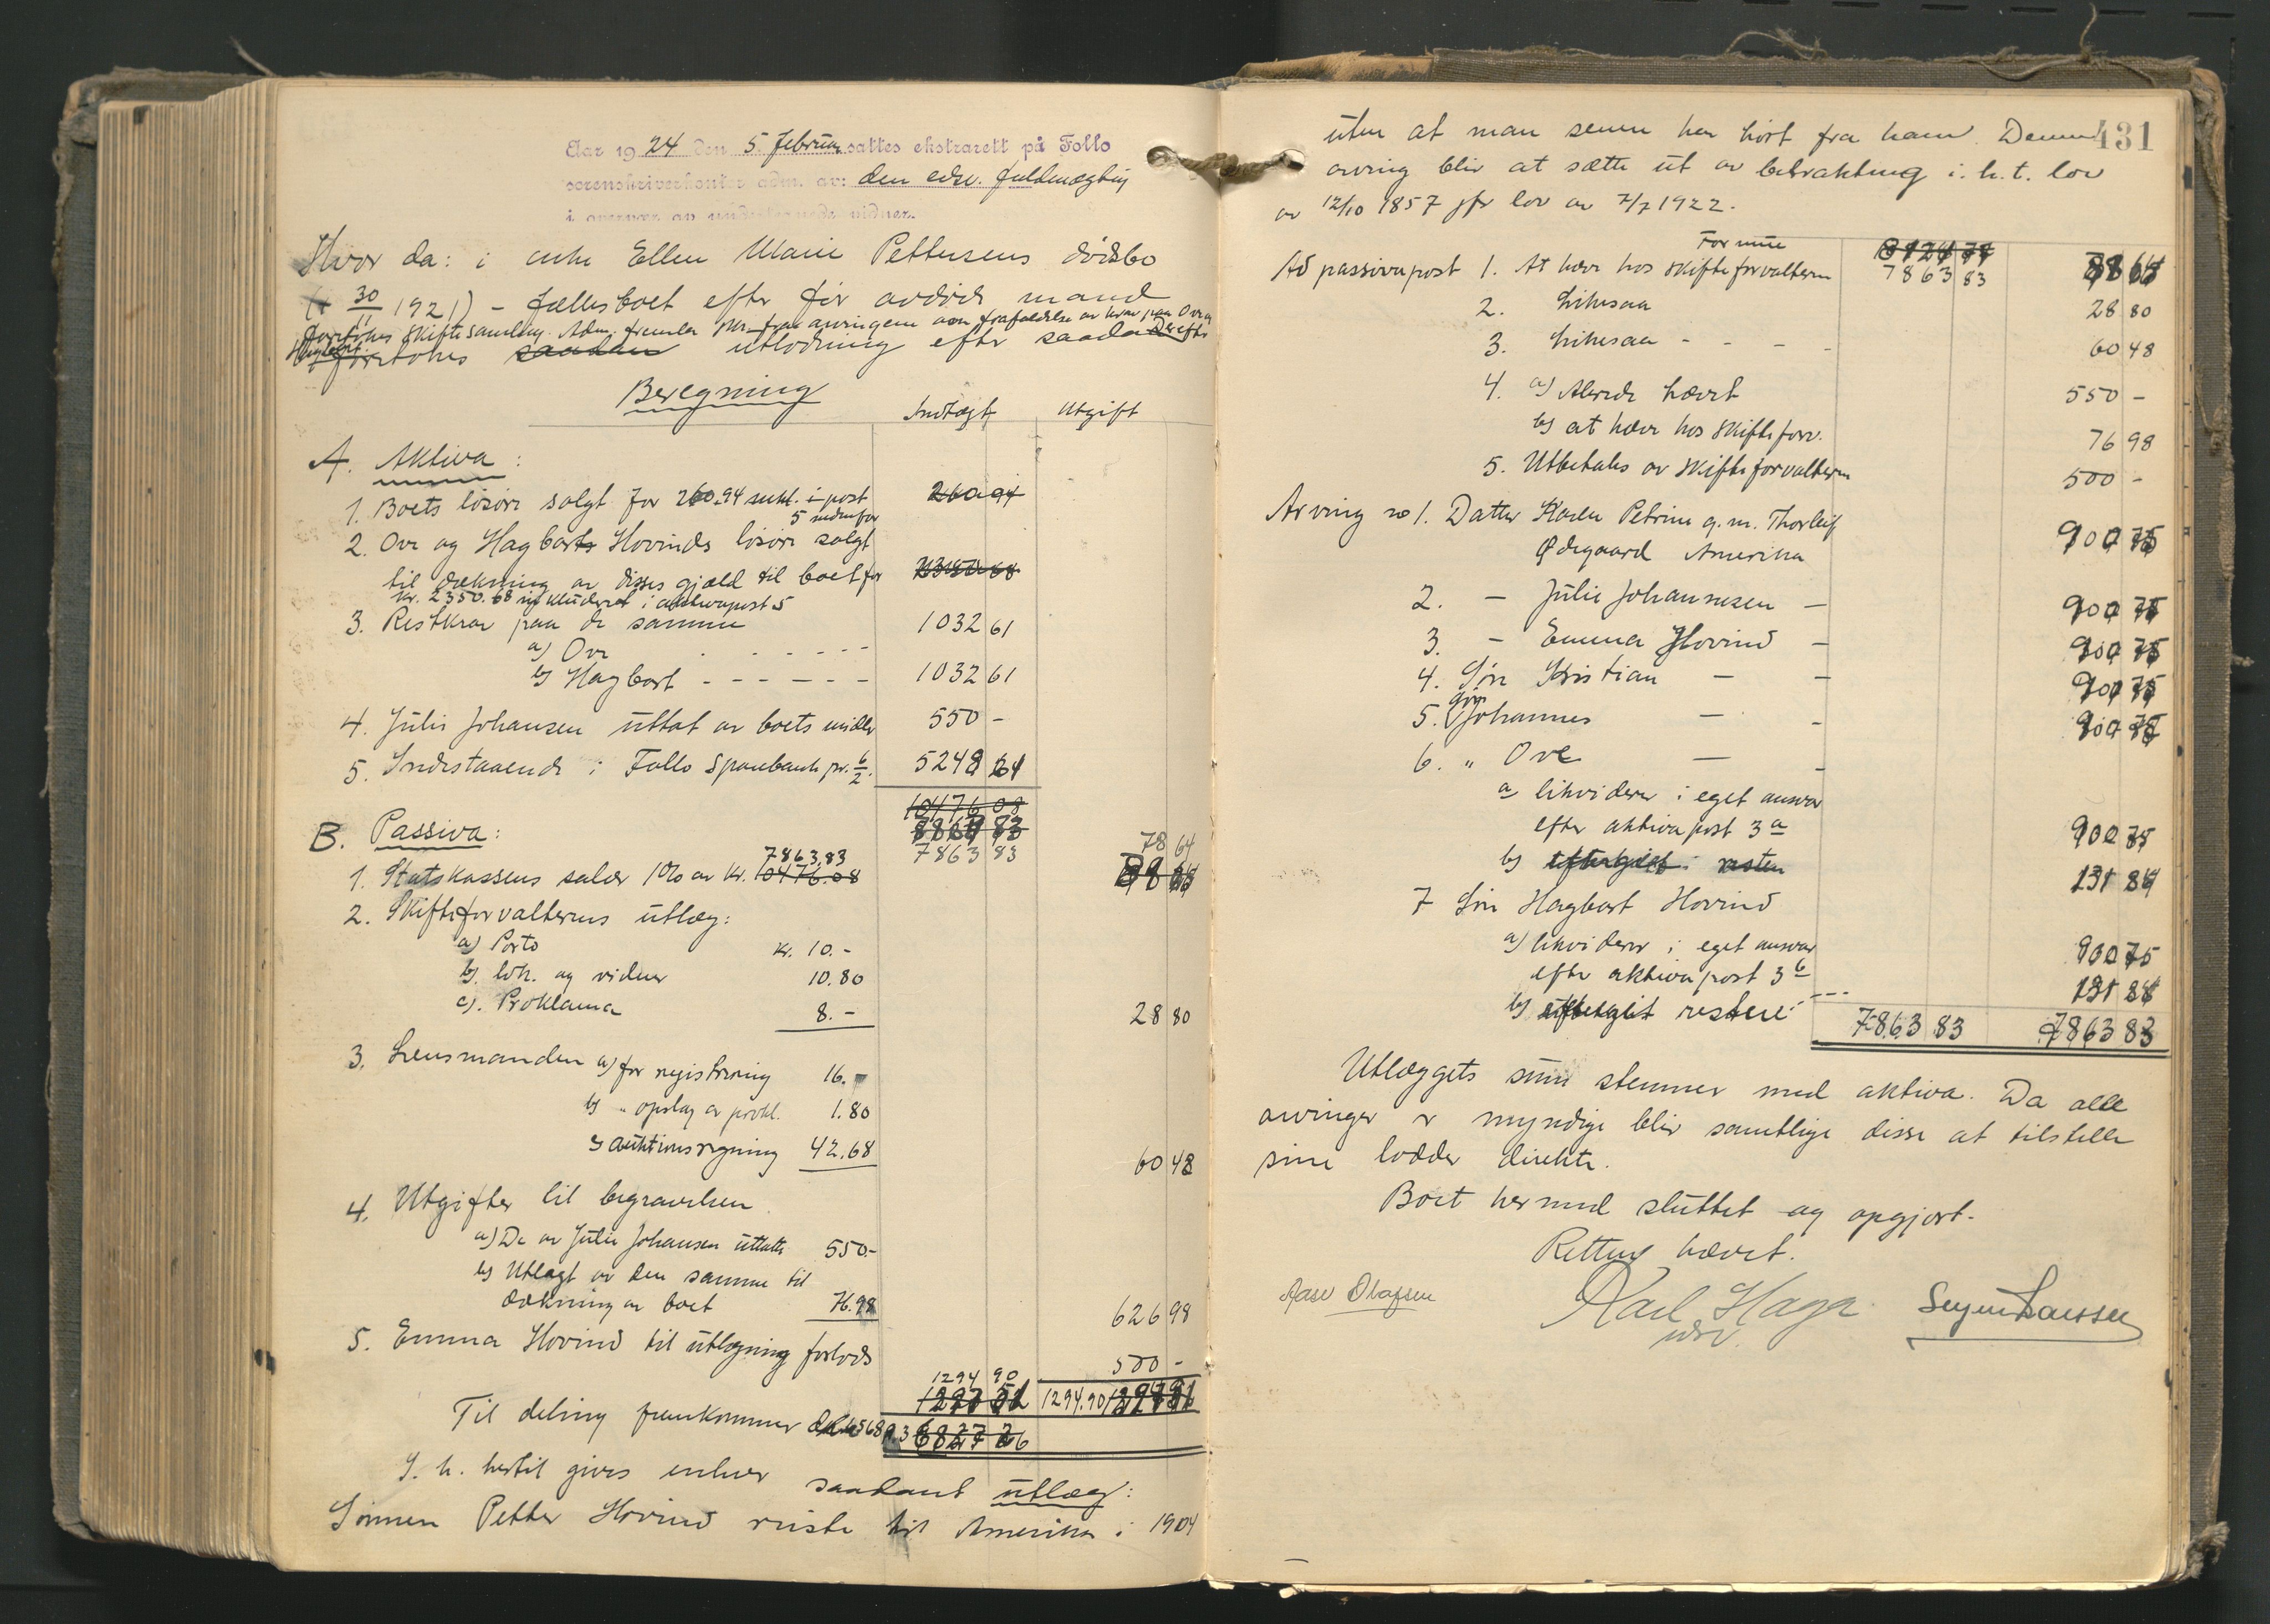 Aar 1924 den 5. februar sattes ekstrarett på Follo
sorenskriverkontor adm. av: den edsv. fuldmægtig
i overvær av undertegnede vidner.
Hvor da: i enke Ellen Marie Pettersens dødsbo
( 30/11 1921) – fællesboet efter før avdøde mand
foretokes skiftesamling. Adm. fremla
foretokes saadan utlodning efter saadan
Beregning
Indtægt Utgift
A. Aktiva:
1. Boets løsøre solgt for 260.94 inkl. i post 260 94
5 nedenfor
2. Ove og Hagbarts Hovinds løsøre solgt
til dækning av disses gjæld til boet for 2350 68
kr. 2350.68 inkluderet i aktivapost 5
3. Restkrav paa de samme
a) Ove - - - - - - 1032 61
b) Hagbart - - - - - - 1032 61
4. Julie Johansen uttat av boets midler 550 –
5. Indestaaende i Follo Sparebank pr. 6/2. 5248 61
10476 08
7863 83
B. Passiva:
7863.83 78 64
1. Statskassens salær 1% av kr. 10476.08
2. Skifteforvalterens utlæg:
a) Porto kr. 10.-
b) lok. og vidner 10.80
c). Proklama 8.- 28 80
3. Lensmanden a) for registrering 16.-
b) " opslag av prokl. 1.80
c) auktionsregning 42.68 60 48
4. Utgifter til begravelsen
a) De av Julie Johansen uttatte 550.-
b) Utlagt av den samme til
dækning av boet 76.98 626 98
5. Emma Hovind til utlægning forlods 500 -
1294 90
1294.90
Til deling fremkommer 6568.93
I. h. hertil gives enhver saadant utlæg:
Sønnen Petter Hovind reiste til Amerika i 1904
431
uten at man senere har hørt fra ham. Denne
arving blir at sætte ut av betraktning i. h. t. lov
av 12/10 1857 jfr lov av 7/7 1922.
Formue
Ad passivapost 1. At hæve hos skifteforvalteren 7863 83 78 64
2. Likesaa 28 80
3. Likesaa - - - - 60 48
4. a) Allerede hævet 550 –
b) at hæve hos skifteforv. 76 98
5. Utbetales av skifteforvalteren 500 -
Arving no 1. Datter Karen Petrine g. m. Thorleif
Ødegaard Amerika 900 75
2. – Julie Johannesen – 900 75
3. – Emma Hovind – 900 75
4. Søn Kristian – – 900 75
5. Søn Johannes – - 900 75
6. " Ove – -
a likviderer i eget ansvar
efter aktivapost 3 a 900 75
b) resten 131 86
7 Søn Hagbart Hovind
a) likviderer i eget ansvar
efter aktivapost 3 b 900 75
b) eftergit restere 131 86
7863 83 7863 83
Utlæggets sum stemmer med aktiva. Da alle
arvinger er myndige blir samtlige disse at tilstille
sine lodder direkte.
Boet hermed sluttet og opgjort.
Retten hævet.
Aase Olafsen Karl Haga
edsv.